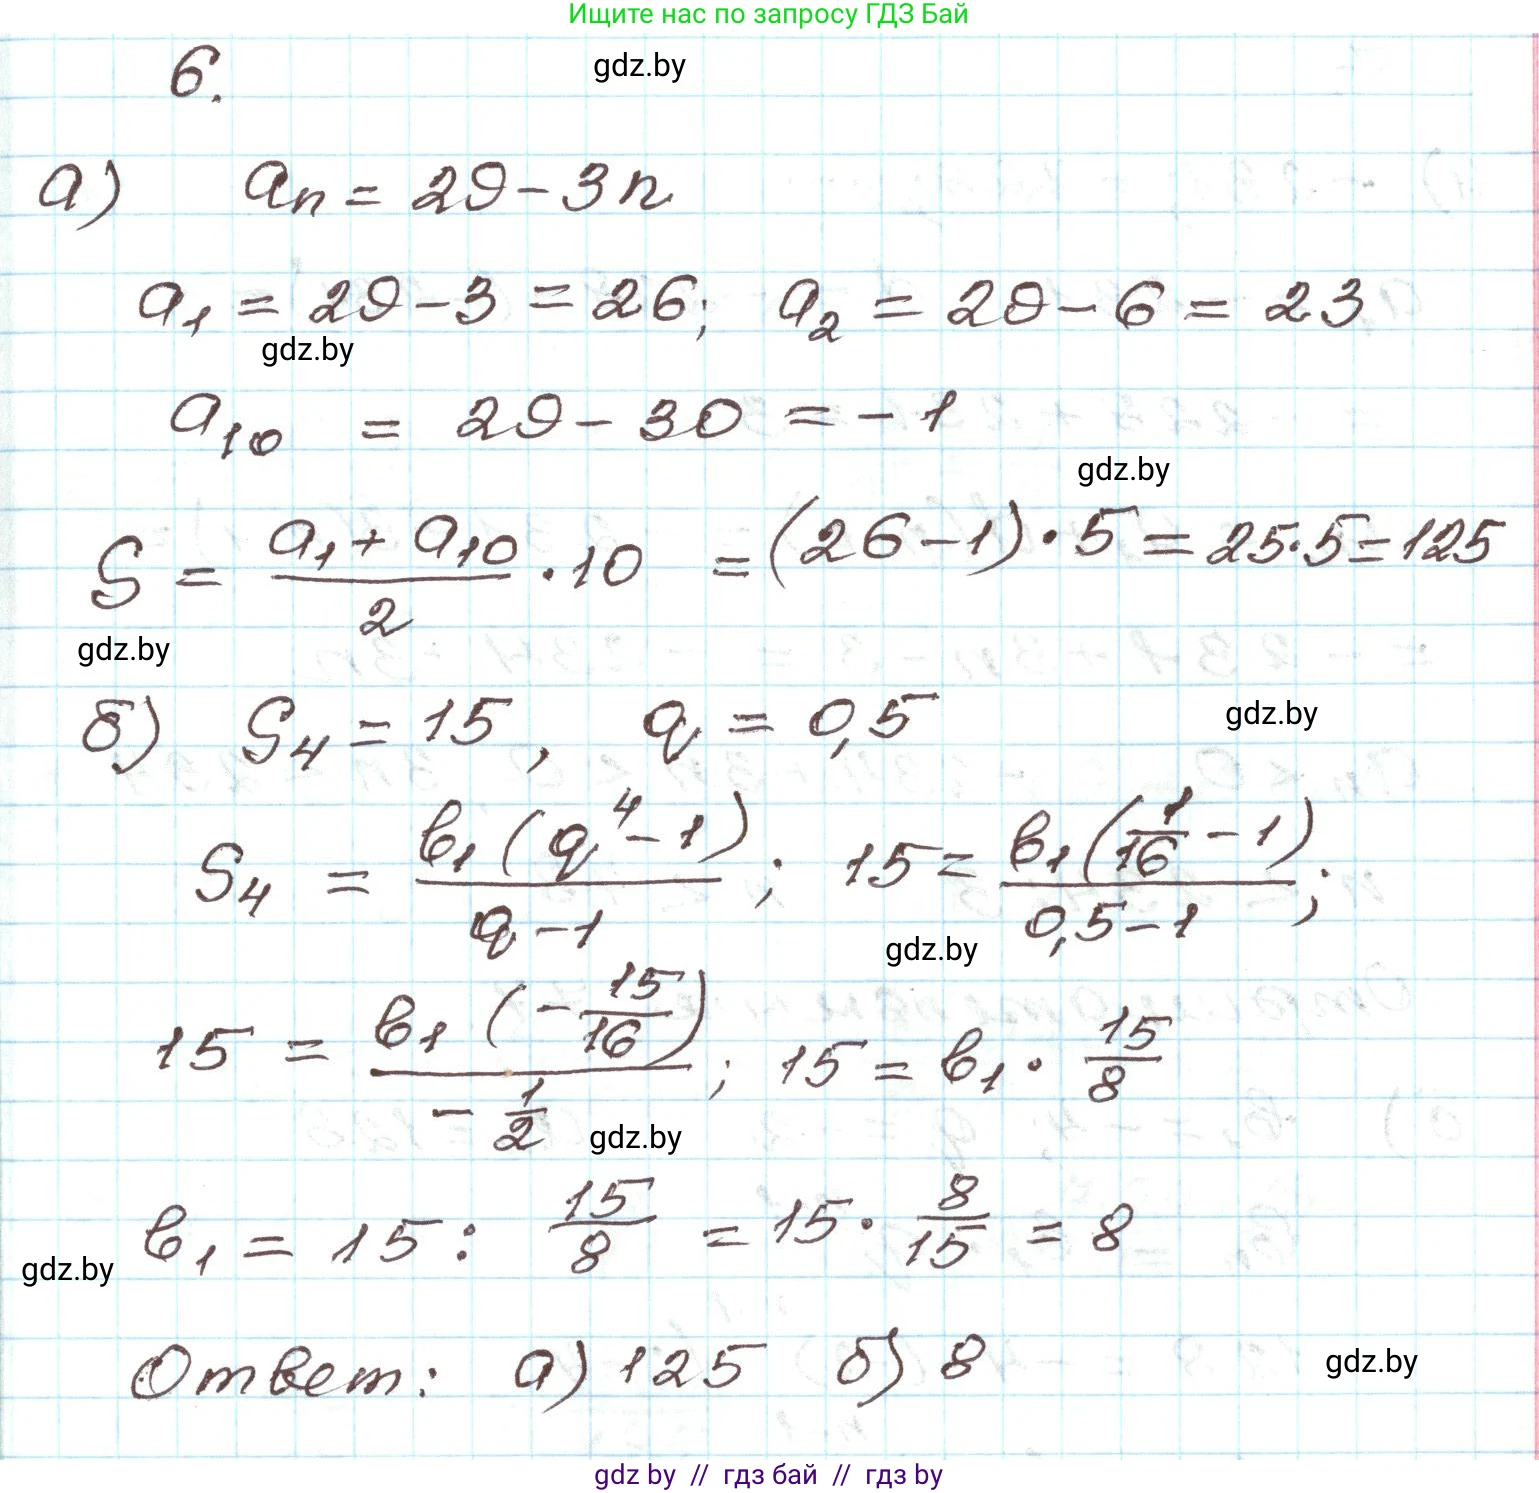 Ищите нас по запросу ГДЗ Бай
6.
gdz.by
а) aₙ = 29 - 3n
a₁ = 29 - 3 = 26; a₂ = 29 - 6 = 23
gdz.by
a₁₀ = 29 - 30 = -1
gdz.by
S = (a₁ + a₁₀)/2 · 10 = (26 - 1) · 5 = 25·5 = 125
gdz.by
б) S₄ = 15, q = 0,5
gdz.by
S₄ = b₁(q⁴ - 1)/(q - 1); 15 = b₁(1/16 - 1)/(0,5 - 1);
gdz.by
15 = b₁(-15/16)/(-1/2); 15 = b₁ · 15/8
gdz.by
b₁ = 15 : 15/8 = 15 · 8/15 = 8
gdz.by
Ответ: а) 125 б) 8
gdz.by
gdz by // гдз бай // gdz by